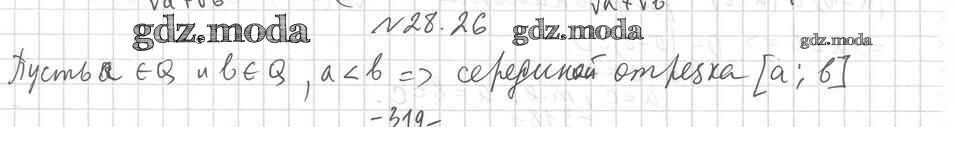 №28.26
gdz.moda gdz.moda gdz.moda
Пусть a ∈ Q и b ∈ Q, a < b => серединой отрезка [a; b]
-319-